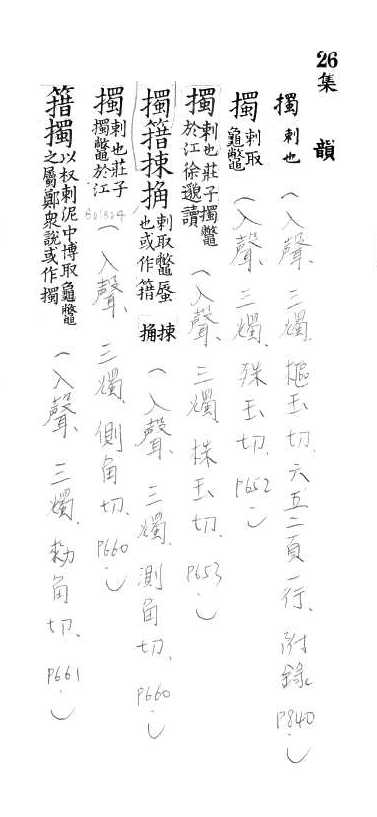 26集韻
擉刺也(入聲、三燭、樞玉切、六五二頁一行、附錄P840、)
擉刺取龜鼈(入聲、三燭、殊玉切、P652、)
擉刺也莊子擉鼈於江徐邈讀(入聲、三燭、株玉切、P653、)
擉簎捒捔刺取鼈蜃也或作籍捒捔(入聲、三燭、測角切、P660、)
擉刺也莊子擉鼈於江(入聲、三燭、側角切、P660、)
簎擉以杈刺泥中博取龜鼈之屬鄭衆說或作擉(入聲、三燭、勑角切、P661、)